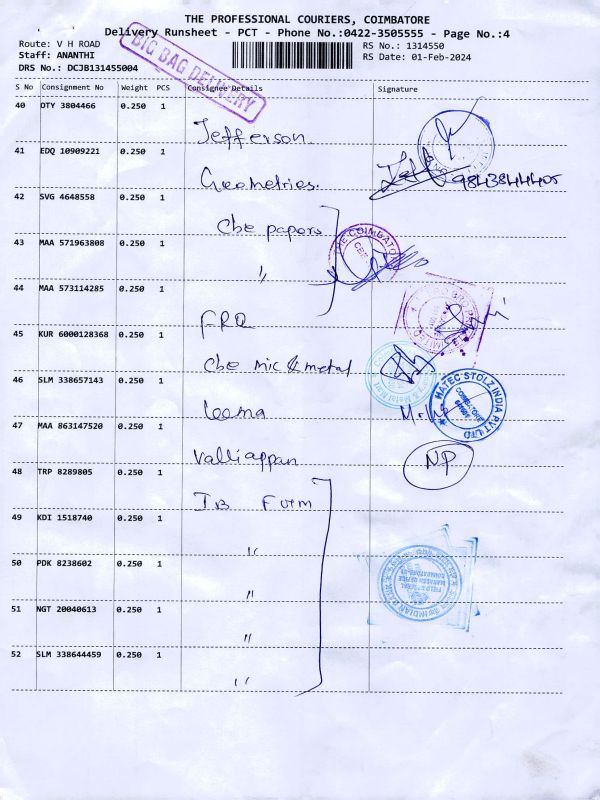 THE PROFESSIONAL COURIERS, COIMBATORE
Delivery Runsheet - PCT - Phone No.:0422-3505555 - Page No.:4
Route: V H ROAD
RS No.: 1314550
Staff: ANANTHI
RS Date: 01-Feb-2024
DRS No.: DCJB131455004
BIG BAG DELIVERY
S No Consignment No Weight PCS Consignee Details Signature
40 OTY 3804466 0.250 1 Jefferson
41 EDQ 10909221 0.250 1 Geometries. 9843844405
42 SVG 4648558 0.250 1 Cbe papers
THE COIMBATORE
CBE
43 MAA 571963808 0.250 1 "
44 MAA 573114285 0.250 1
45 KUR 6000128368 0.250 1 Cbe mic & metal
& Metal Mart
46 SLM 338657143 0.250 1
HATEC STOLZ INDIA PVT LTD
COIMBATORE
47 MAA 863147520 0.250 1 Valliappan NP
48 TRP 8289805 0.250 1
49 KDI 1518740 0.250 1 "
50 PDK 8238602 0.250 1 "
INDIAN
51 NGT 20040613 0.250 1 "
52 SLM 338644459 0.250 1 "